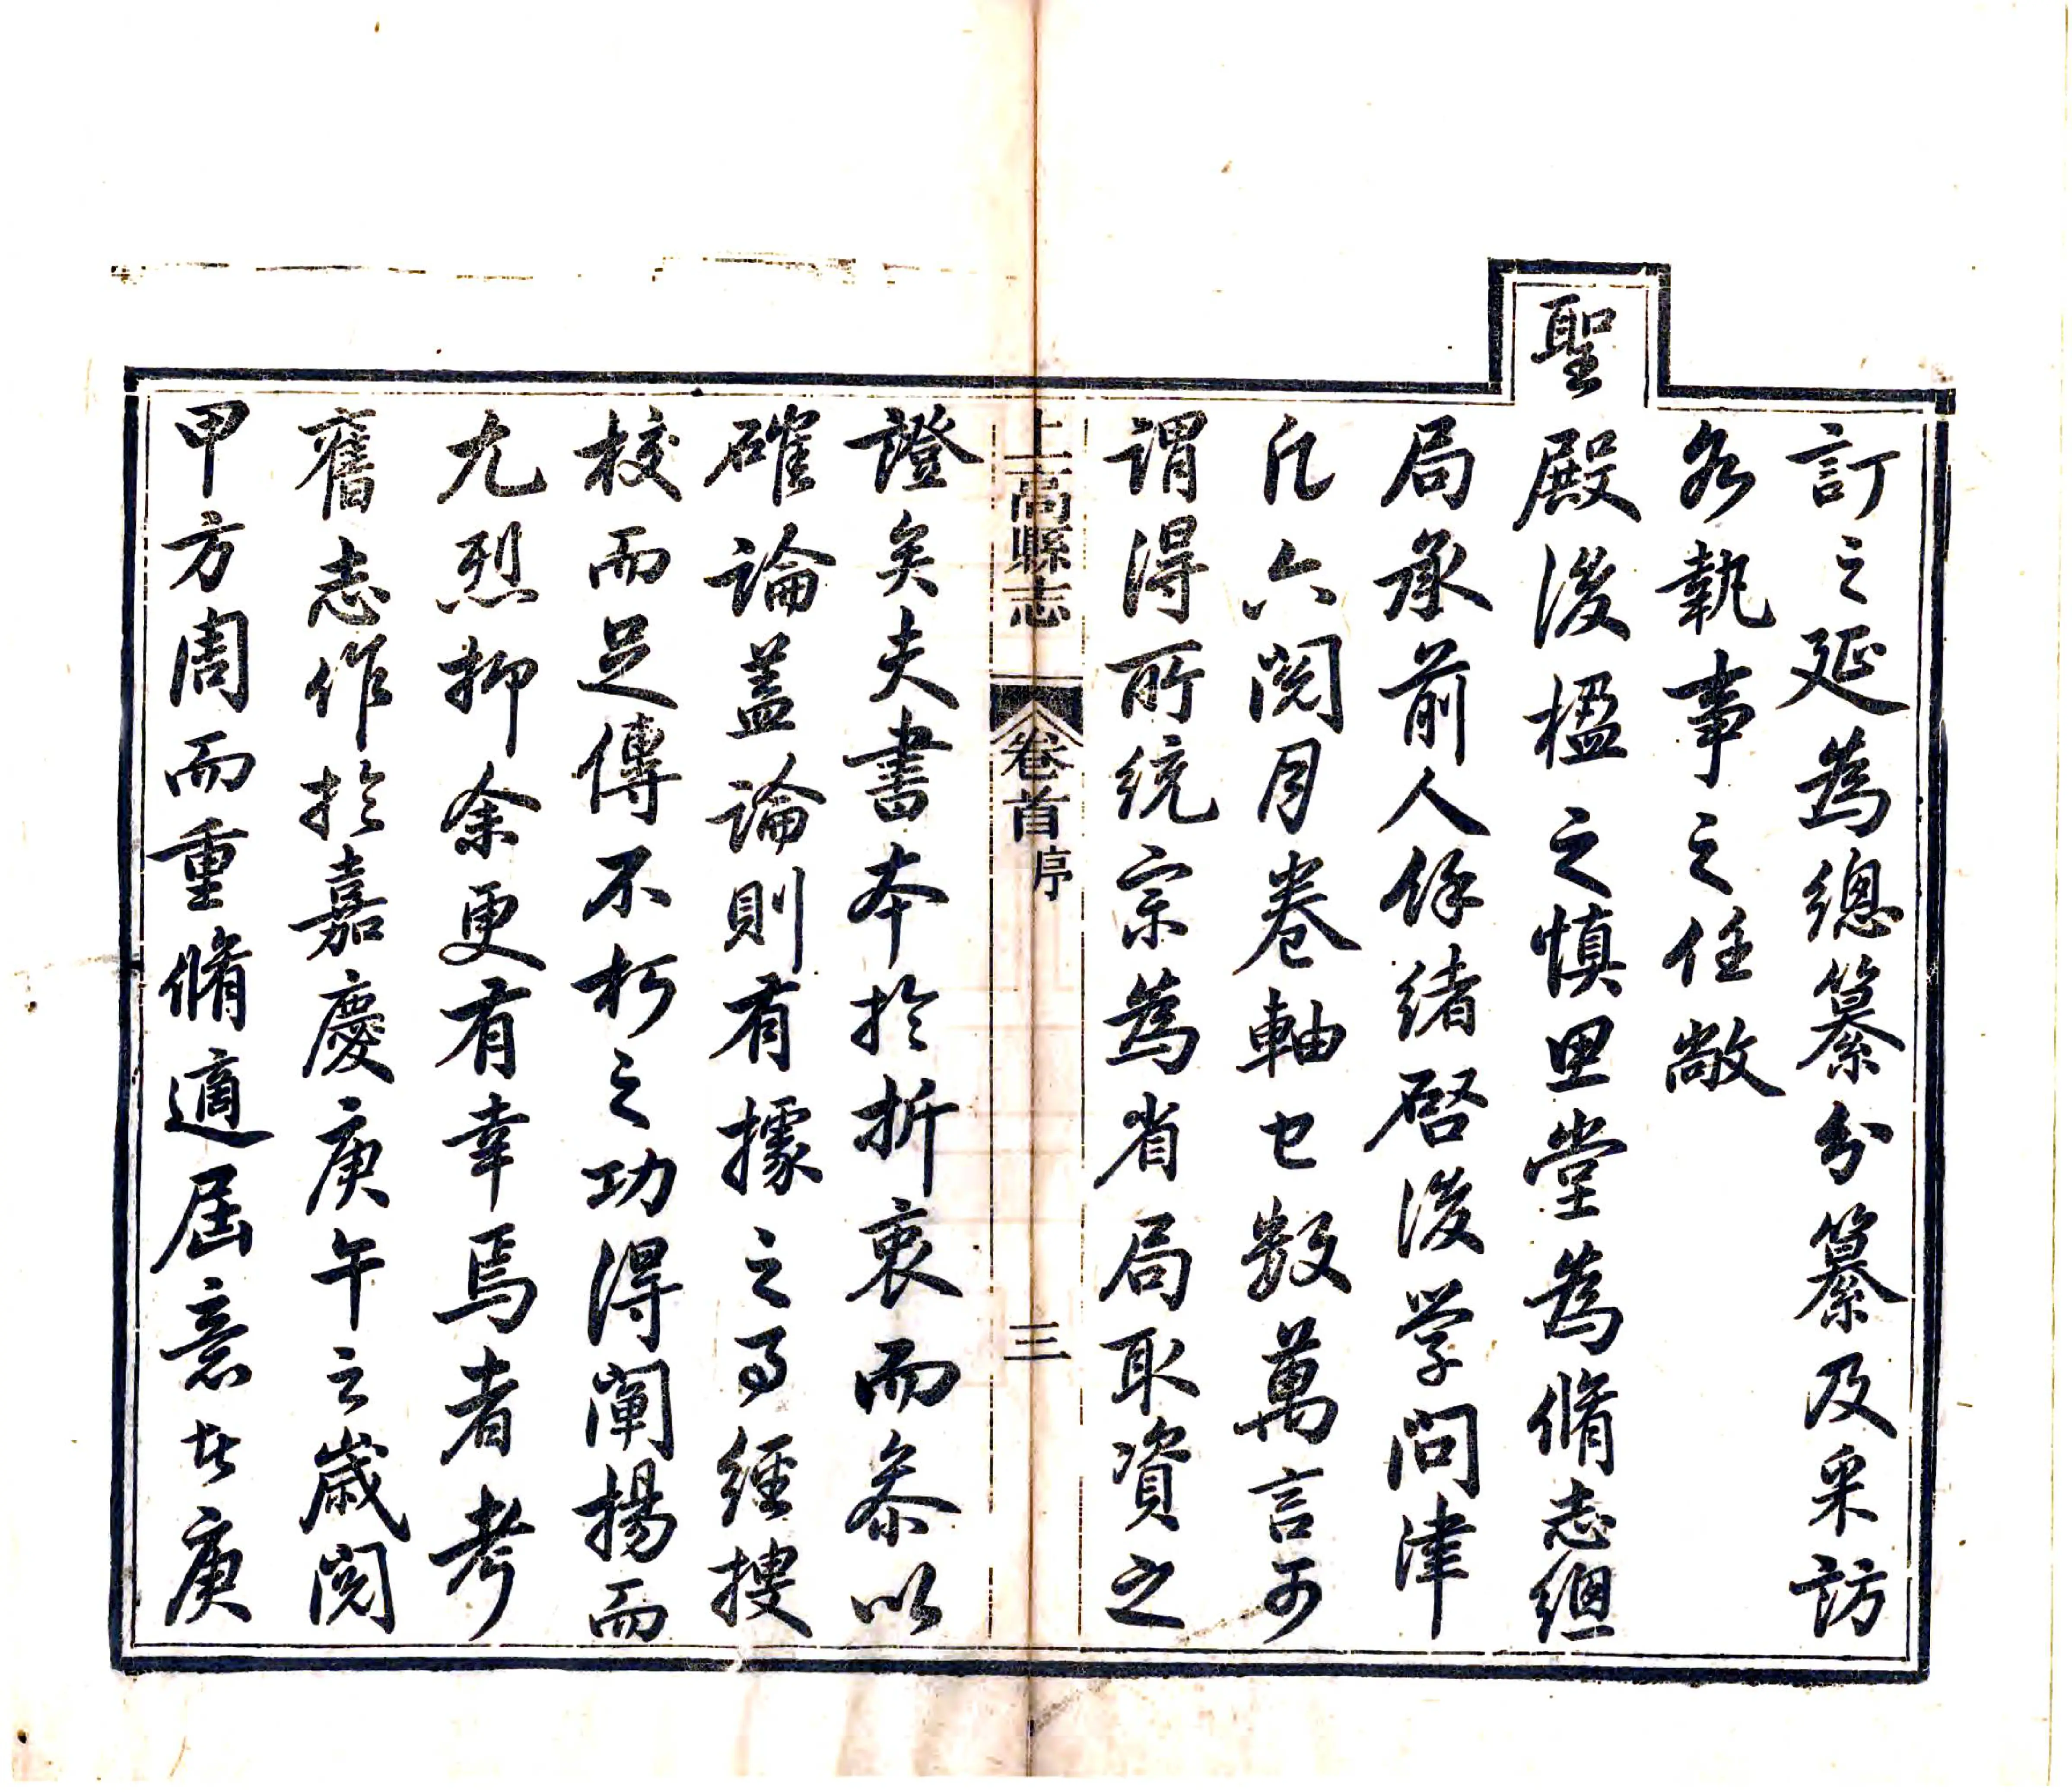 訂之延為總纂分纂及采訪
各執事之任敞
聖殿後楹之慎思堂為脩志總
局承前人餘緒啓後学問津
凡六閱月卷軸已數萬言可
謂得所統宗為省局取資之
上高縣志 卷首 序 三
證矣夫書本於折衷而参以
確論蓋論則有據之可經搜
校而足傳不朽之功得闡揚而
尤烈抑余更有幸焉者考
舊志作於嘉慶庚午之歲閱
甲方周而重脩適屆意於庚